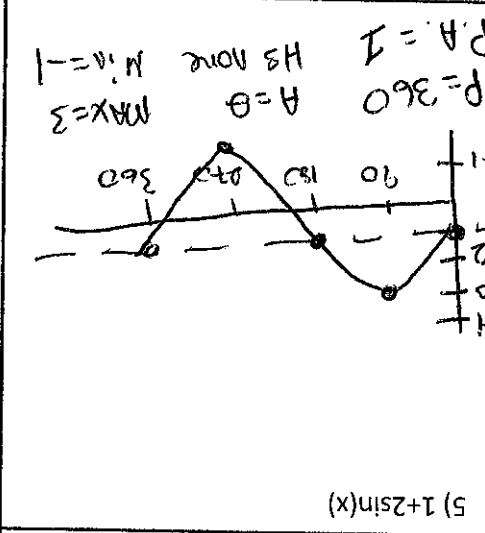 5) 1+2sin(x)
4
3
2
-1
90 180 270 360
P=360 A= MAX=3
P.A.=1 HS none Min=-1